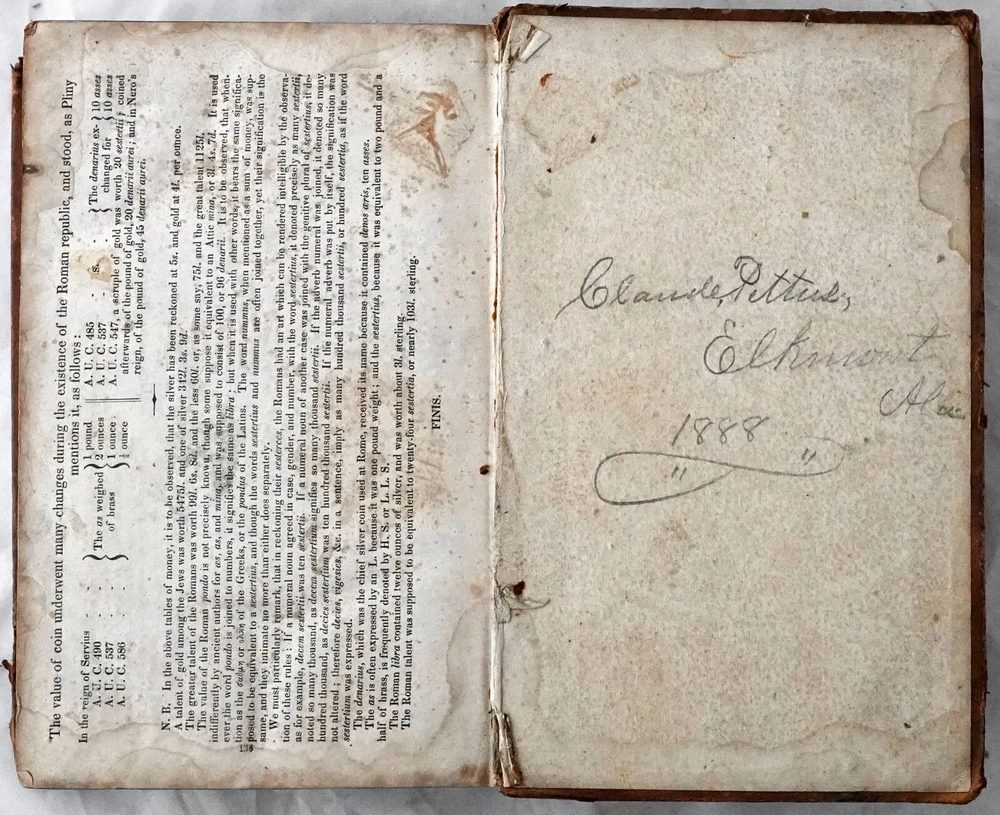 The value of coin underwent many changes during the existence of the Roman republic, and stood, as Pliny
mentions it, as follows:
In the reign of Servius
A. U. C. 490
A. U. C. 537
A. U. C. 586
The as weighed
of brass
1 pound
2 ounces
1 ounce
½ ounce
A. U. C. 485
A. U. C. 537
The denarius ex-
changed for
10 asses
10 asses
A. U. C. 547, a scruple of gold was worth 20 sestertii; coined
afterwards of the pound of gold, 20 denarii aurei; and in Nero's
reign, of the pound of gold, 45 denarii aurei.
N. B. In the above tables of money, it is to be observed, that the silver has been reckoned at 5s. and gold at 4l. per ounce.
A talent of gold among the Jews was worth 5475l. and one of silver 342l. 3s. 9d.
The greater talent of the Romans was worth 99l. 6s. 8d. and the less 60l. or, as some say, 75l. and the great talent 1125l.
The value of the Roman pondo is not precisely known, though some suppose it equivalent to an Attic mina, or 3l. 4s. 7d. It is used
indifferently by ancient authors for æs, as, and mina, and was supposed to consist of 100, or 96 denarii. It is to be observed, that when-
ever the word pondo is joined to numbers, it signifies the same as libra; but when it is used with other words, it bears the same significa-
tion as the σταθμη or ολκη of the Greeks, or the pondus of the Latins. The word nummus, when mentioned as a sum of money, was sup-
posed to be equivalent to a sestertius, and though the words sestertius and nummus are often joined together, yet their signification is the
same, and they intimate no more than either does separately.
We must particularly remark, that in reckoning their sesterces, the Romans had an art which can be rendered intelligible by the observa-
tion of these rules: If a numeral noun agreed in case, gender, and number, with the word sestertius, it denoted precisely as many sestertii,
as for example, decem sestertii was ten sestertii. If a numeral noun of another case was joined with the genitive plural of sestertius, it de-
noted so many thousand, as decem sestertium signifies so many thousand sestertii. If the adverb numeral was joined, it denoted so many
hundred thousand, as decies sestertium was ten hundred thousand sestertii. If the numeral adverb was put by itself, the signification was
not altered; therefore decies, vigesies, &c. in a sentence, imply as many hundred thousand sestertii, or hundred sestertia, as if the word
sestertium was expressed.
The denarius, which was the chief silver coin used at Rome, received its name because it contained denos æris, ten asses.
The as is often expressed by an L. because it was one pound weight; and the sestertius, because it was equivalent to two pound and a
half of brass, is frequently denoted by H. S. or L. L. S.
The Roman libra contained twelve ounces of silver, and was worth about 3l. sterling.
The Roman talent was supposed to be equivalent to twenty-four sestertia, or nearly 193l. sterling.
FINIS.
Claude, Pettus,
Elkmont
Ala
1888
" "